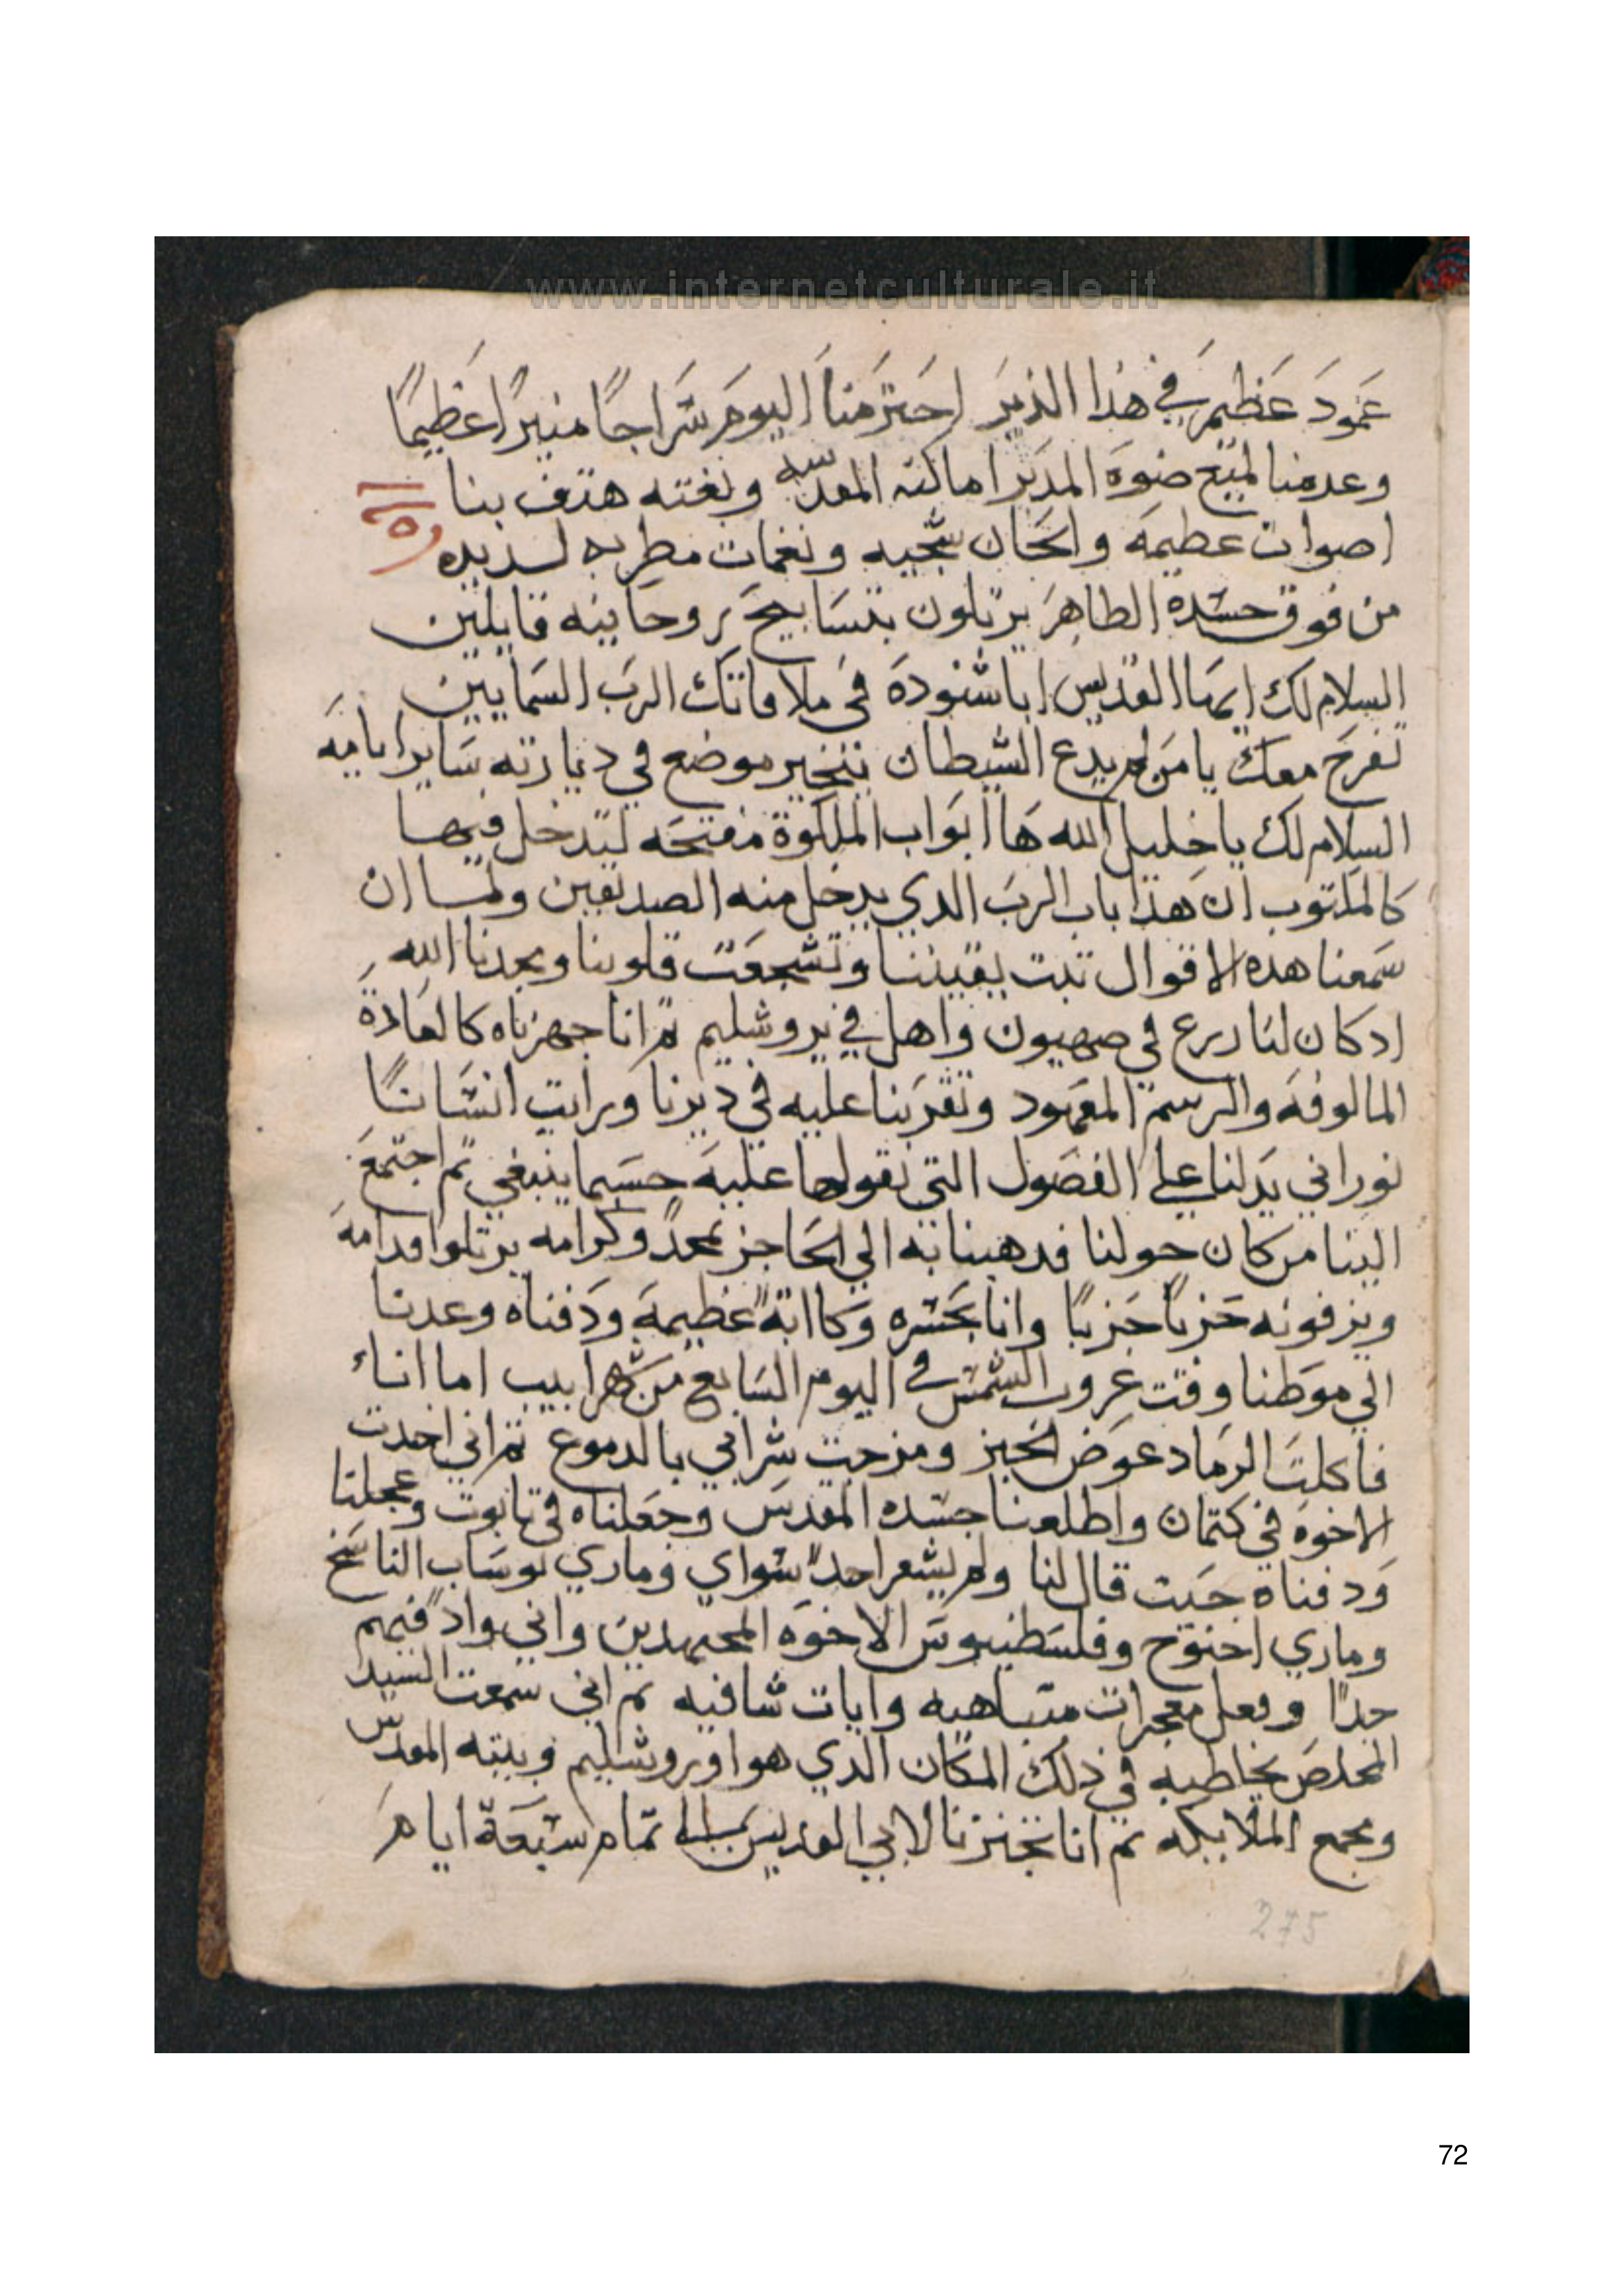 www.internetculturale.it
عمود عظيم في هذا الدير احترمنا اليوم سراجا منيرا عظيما
وعدمنا لميع ضوه المدير اماكنه المقدسه وبغته هتف بنا
اصوات عظيمه والحان شجيه ونغمات مطربه لذيذه
من فوق جسده الطاهر يرتلون بتسابيح روحانيه قايلين
السلام لك ايها القديس ابا شنوده في ملاقاتك الرب السمايين
تفرح معك يا من لم يدع الشيطان يتخير موضع في ديارته ساير ايامه
السلام لك يا خليل الله ها ابواب الملكوة مفتحه لتدخل فيها
كالمكتوب ان هذا باب الرب الدي يدخل منه الصديقين ولما ان
سمعنا هده الاقوال تبت يقيننا وتشجعت قلوبنا ومجدنا الله
اد كان لنا درع في صهيون واهل في يروشليم تم انا جهزناه كالعادة
المالوفه والرسم المعهود وتقربنا عليه في ديرنا ورايت انسانا
نوراني يدلنا علي الفصول التي نقولها عليه حسبما ينبغي تم اجتمع
الينا من كان حولنا فدهبنا به الي الحاجز بمجد وكرامه يرتلوا قدامه
ويزفونه حزبا حزبا وانا بحسره وكاابة عظيمه ودفناه وعدنا
الي موطنا وقت غروب الشمس في اليوم السابع من شهر ابيب اما انا
فاكلت الرماد عوض الخبز ومزجت شرابي بالدموع تم اني اخدت
الاخوه في كتمان واطلعنا جسده المقدس وجعلناه في تابوت وعجلنا
ودفناه حيت قال لنا ولم يشعر احدا سواي وماري يوساب الناسخ
وماري اخنوخ وفلسطنيوس الاخوه المجتهدين واني واد فيهم
جدا وفعل معجزات متباهيه وايات شافيه تم اني سمعت السيد
المخلص يخاطبه في ذلك المكان الدي هو اوروشليم وبيته المقدس
ومجمع الملايكه تم انا تجنزنا لابي القديس تمام سبعة ايام
275
72